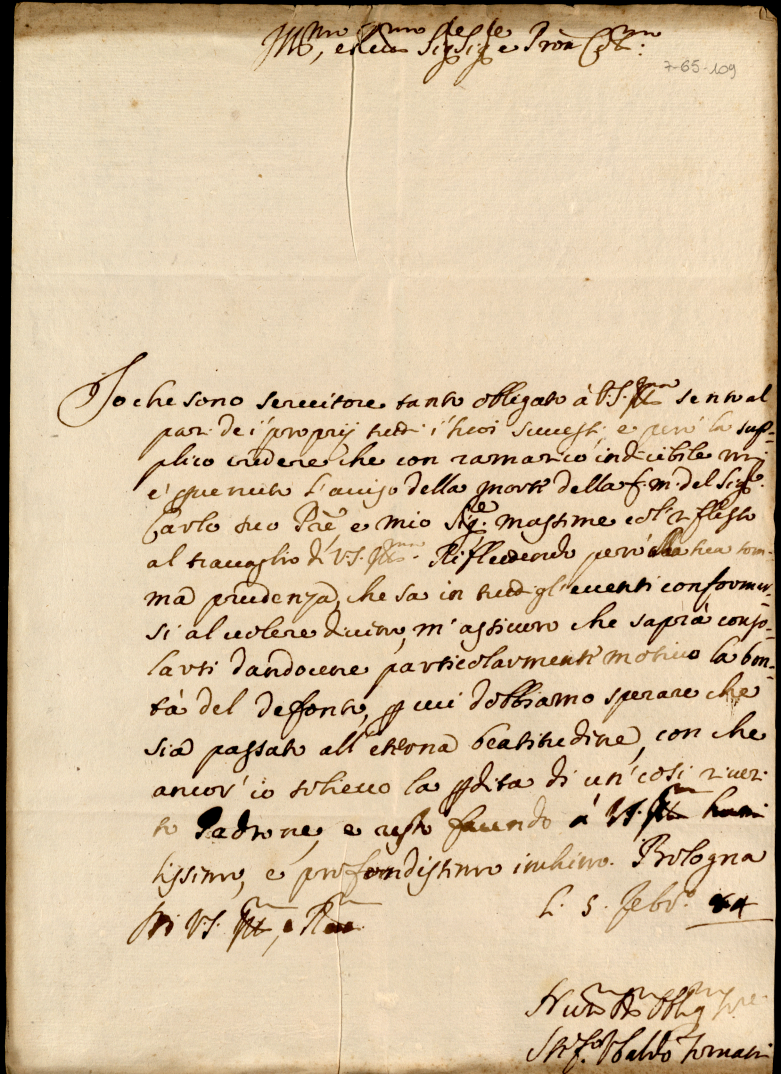 Ill.mo, e R.mo Sig. Sig. e Prōn Col.mo:
7-65-109
Io che sono servitore tanto obbligato à V.S. Ill.ma sento al
par de i proprij tutti i suoi successi, e però la sup-
plico credere che con ramarico indicibile mi
è pervenuto l'aviso della morte della f. m. del Sig.
Carlo suo Prē e mio Sig.re massime col riflesso
al travaglio di V.S. Ill.ma. Riflettendo però alla sua som-
ma prudenza, che sa in tutti gl'eventi conformar-
si al volere divino, m'assicuro che saprà conso-
larsi dandocene particolarmente motivo la bon-
tà del defonto, p cui dobbiamo sperare che
sia passato all'eterna beatitudine, con che
ancor'io sollievo la pdita di un'così riveri-
to Padrone, e resto facendo à V.S. Ill.ma humi
lissimo, e profondissimo inchino. Bologna
Di V.S. Ill.ma, e R.ma
li. 5. Febr.o 84
Obblig.
Ubaldo